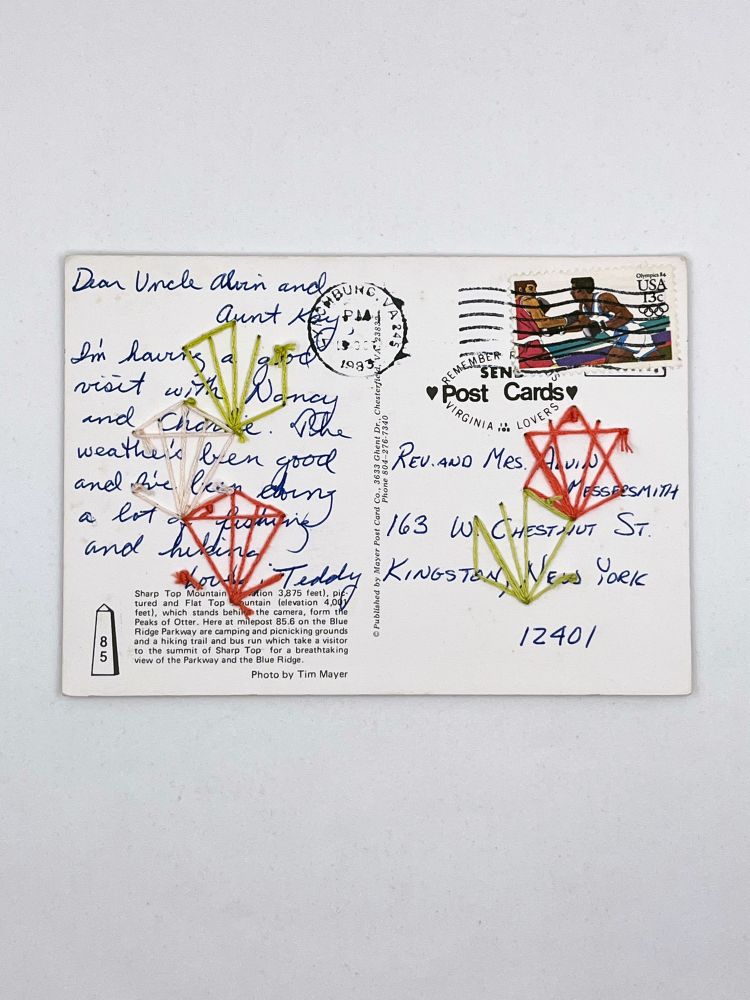 Dear Uncle Alvin and
Aunt Kay,
I'm having a good
visit with Nancy
and Charlie. The
weather's been good
and I've been doing
a lot of fishing
and hiking
Love, Teddy
Sharp Top Mountain 3,875 feet), pic-
tured and Flat Top Mountain (elevation 4,001
feet), which stands behind the camera, form the
Peaks of Otter. Here at milepost 85.6 on the Blue
Ridge Parkway are camping and picnicking grounds
and a hiking trail and bus run which take a visitor
to the summit of Sharp Top for a breathtaking
view of the Parkway and the Blue Ridge.
Photo by Tim Mayer
8
5
© Published by Mayer Post Card Co., 3633 Ghent Dr., Chesterfield, VA 23832
Phone 804-276-7340
LYNCHBURG, VA 245
PM
1983
Olympics 84
USA
13c
REMEMBER
SEND
♥Post Cards♥
VIRGINIA IS FOR LOVERS
REV. AND MRS. ALVIN
MESSERSMITH
163 W. CHESTNUT ST.
KINGSTON, NEW YORK
12401